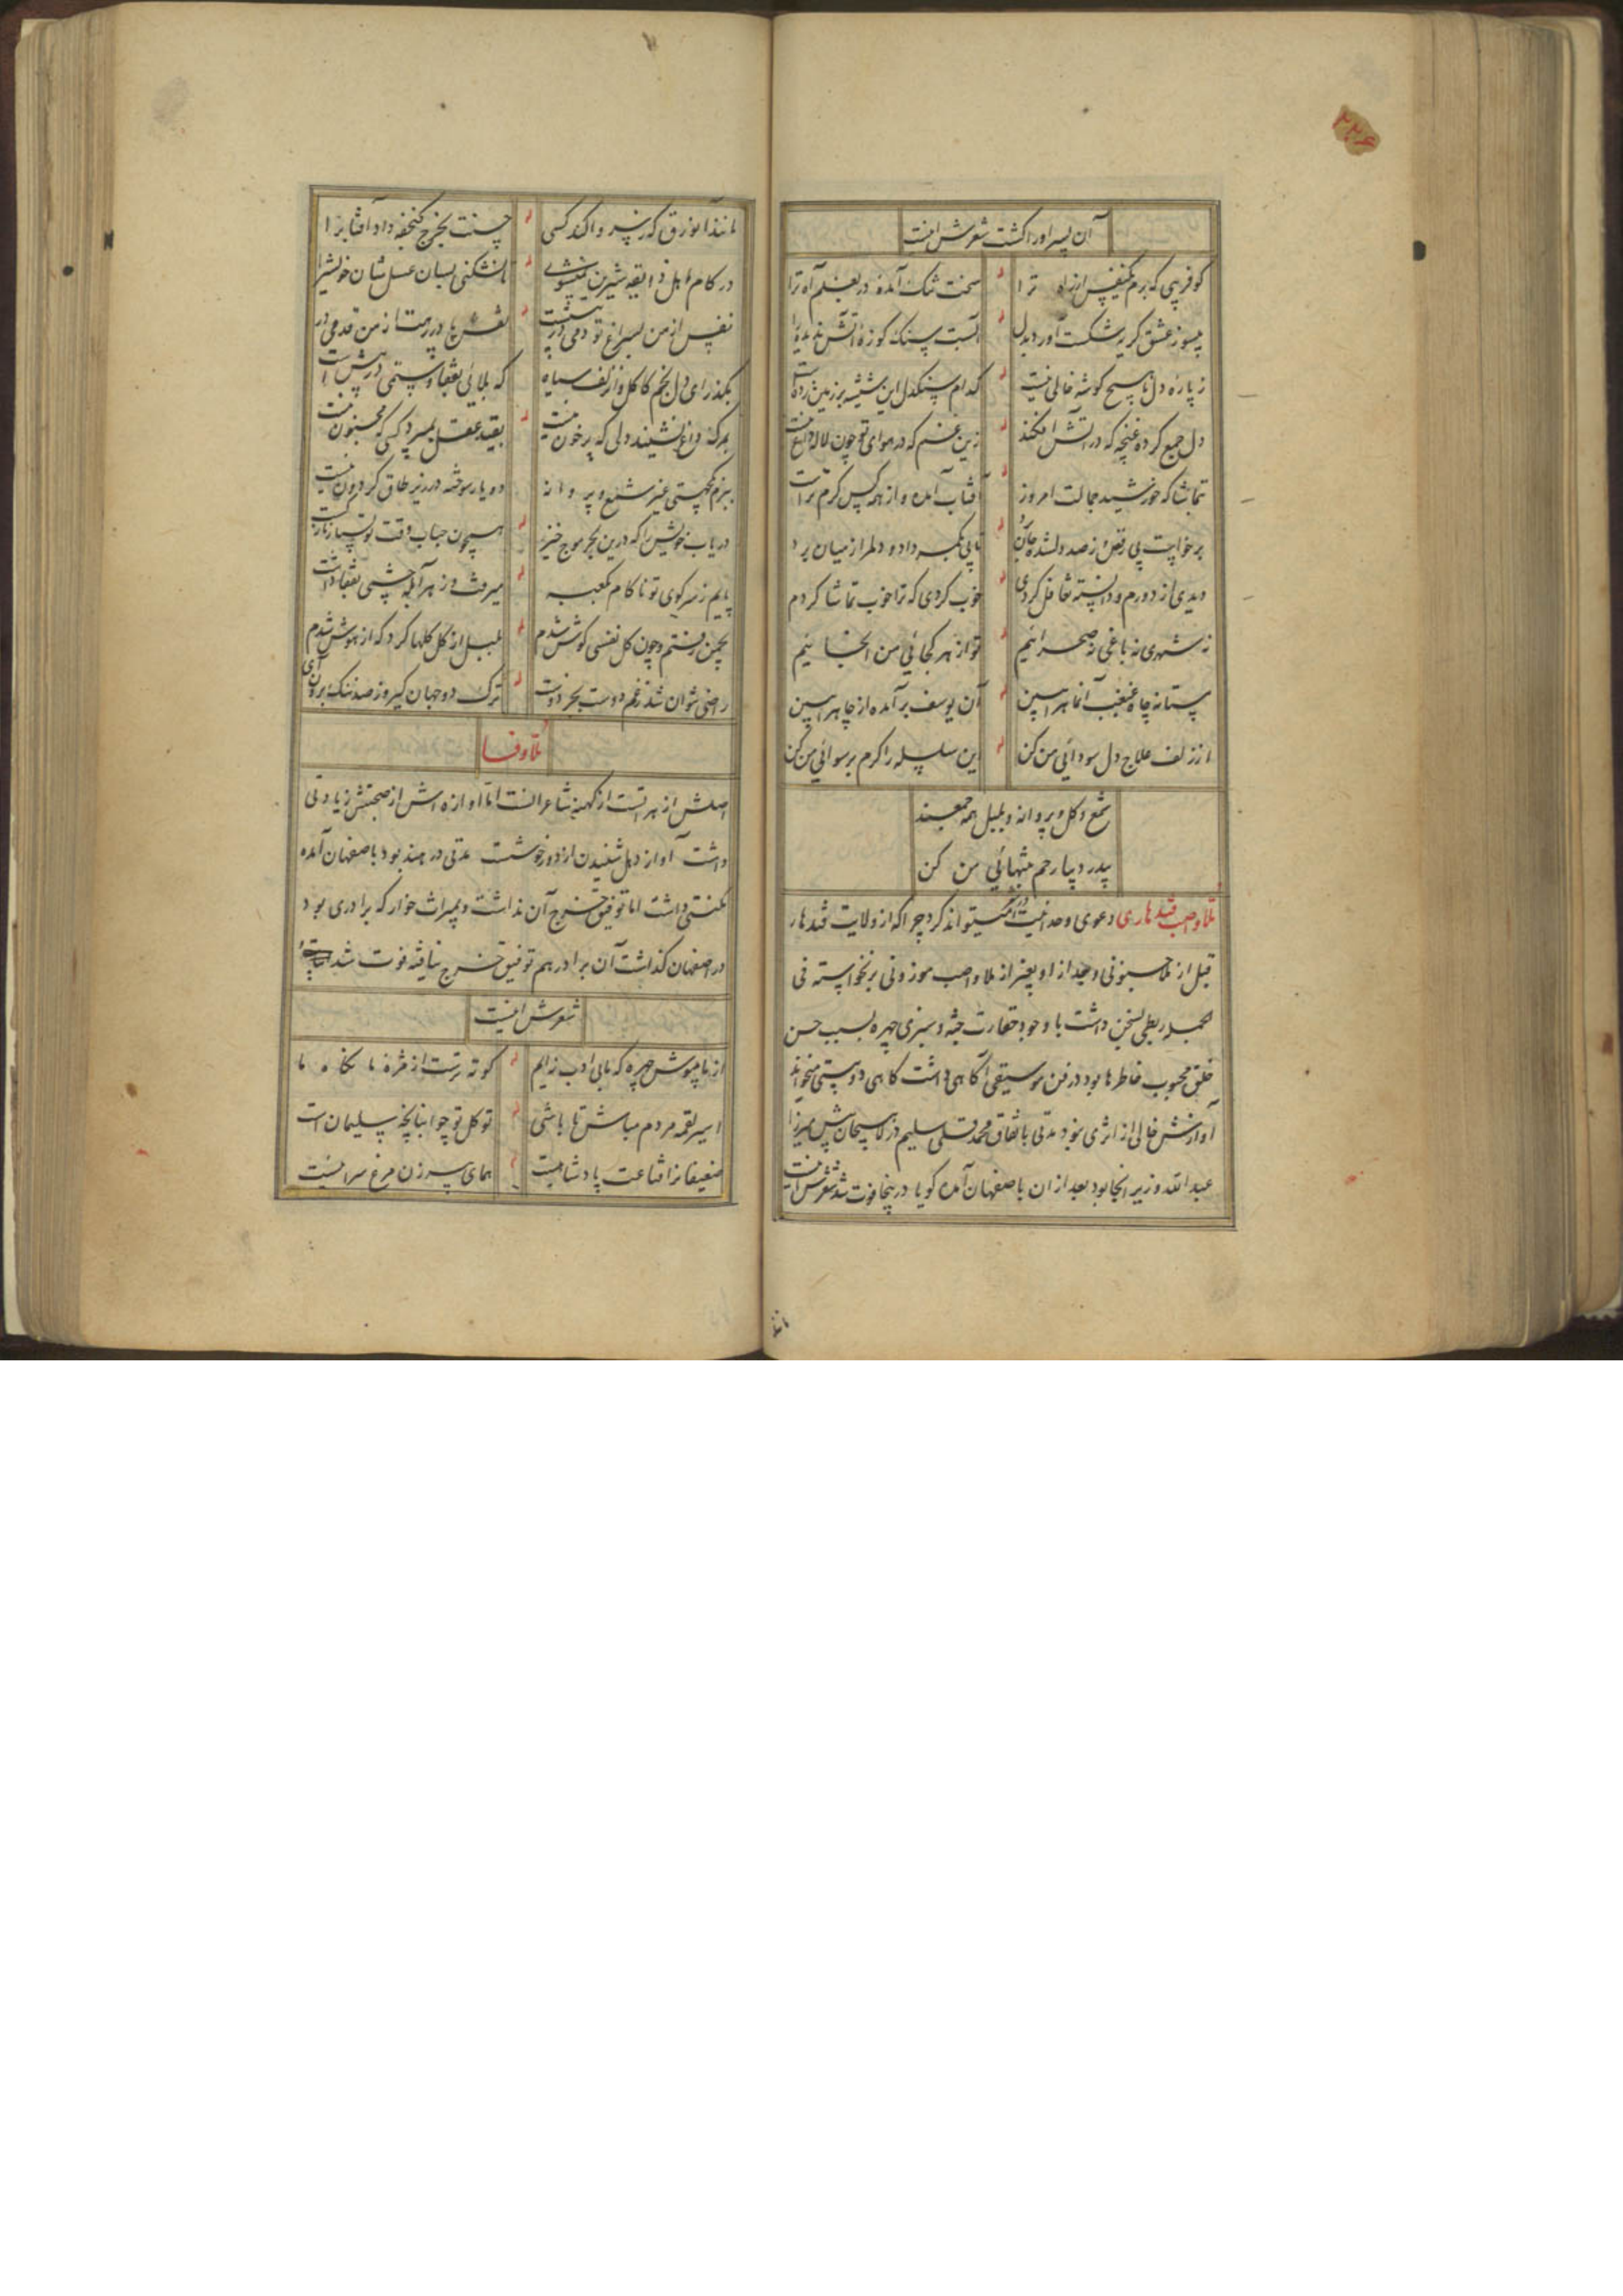 ۲۲۶
آن پسر اورا کشت شعرش اینست
کو فریبی که برم یکنفس از راه ترا سخت تنک آمده در بغلم آه ترا
بیسوز عشق کریه شکست آورد بدل است سنک کوزه آتش ندیده را
ز پاره دل ما هیچ کوشه خالی نیست کدام سنکدل این شیشه بر زمین زده است
دل جمع کرده غنچه که در آتش افکند زین غم که در هوای تو چون لاله داغ نیست
تماشا که خورشید جمالت امروز آفتاب آمده و از همه کس کرم تر است
برخواست پی رقص و ز صد دلشده جان برد تابی بکمر داد و دلم را از میان برد
دیدی از دورم و دانسته تغافل کردی خوب کردی که ترا خوب تماشا کردم
نه شهری نه باغی نه صحرائیم تو از هر کجائی من انجائیم
مستانه چاه غبغب آنماه را ببین آن یوسف بر آمده از چاه را ببین
از زلف علاج دل سودائی من کن این سلسله را کرم برسوائی من کن
شمع و کل و پروانه و بلبل همه جمعند
ای دوست بیا رحم بتنهائی من کن
ملا واصب قندهاری دعوی وحدانیت در کمیتواند کرد چرا که از ولایت قندهار
قبل از ملا حسونی و بعد از او بغیر از ملا واصب موزونی برنخواسته فی
الجمله ربطی بسخن داشت با وجود حقارت جثه و سبزی چهره بسبب حسن
خلق محبوب خاطرها بود در فن موسیقی آکاهی داشت کاهی دو بیتی میخواند
آوازش خالی از اثری نبود مدتی باتفاق محمد قلی سلیم در لاهیجان پیش میرزا
عبدالله وزیر انجا بود بعد از ان باصفهان آمده کویا در ینجا فوت شد شعرش اینست
مانند
مانند آن ورق که ز سر واکند کسی حسنت بخرج کنجفه داد آفتاب را
در کام اهل ذایقه شیرین نمیشوی تا نشکنی بسان عسل شان خویش را
نفس از من بسراغ تو دمی در پیشست نفس باز پس تا ز من قدمی در
بکذر ای دل بخم کاکل و از زلف سیاه که بلائی بقفا و ستمی در پیش است
بمرک داغ نشیند دلی که پر خون نیست بقید عقل بمیرد کسی که مجنون نیست
ببزم هستی غیر شمع و پروانه دو یار سوخته در زیر طاق کردون نیست
دریاب خویش را که درین بحر موج خیز همچون حباب وقت تو بسیار نازکست
پایم ز سر کوی تو ناکام بکعبه میرفت و ز هر آبله چشمی بقفا داشت
بچمن رفتم و چون کل نفسی کوش شدم بلبل از کل کلها کرد که از هوش شدم
راضی نتوان شد ز غم دوست بجز دوست ترک دو جهان کیر و ز صد ننک برون آی
ملا وفا
اصلش از هراتست از کهنه شاعرانست اما آوازه اش از صحبتش زیادتی
داشت آواز دهل شنیدن از دور خوشست مدتی در هند بود باصفهان آمده
مکنتی داشت اما توفیق خرج آن نداشت و بمیراث خوار که برادری بود
در اصفهان کذاشت آن برادر هم توفیق خرج نیافته فوت شد
شعرش اینست
از ما مپوش چهره که ما بی ادب نه ایم کوته تر است از مژه ما نکاه ما
اسیر لقمه مردم مباش تا باشی توکل تو چو انبانچه سلیمان است
ضعیفانرا قناعت پادشاهیست همای پیرزن مرغ سرائیست